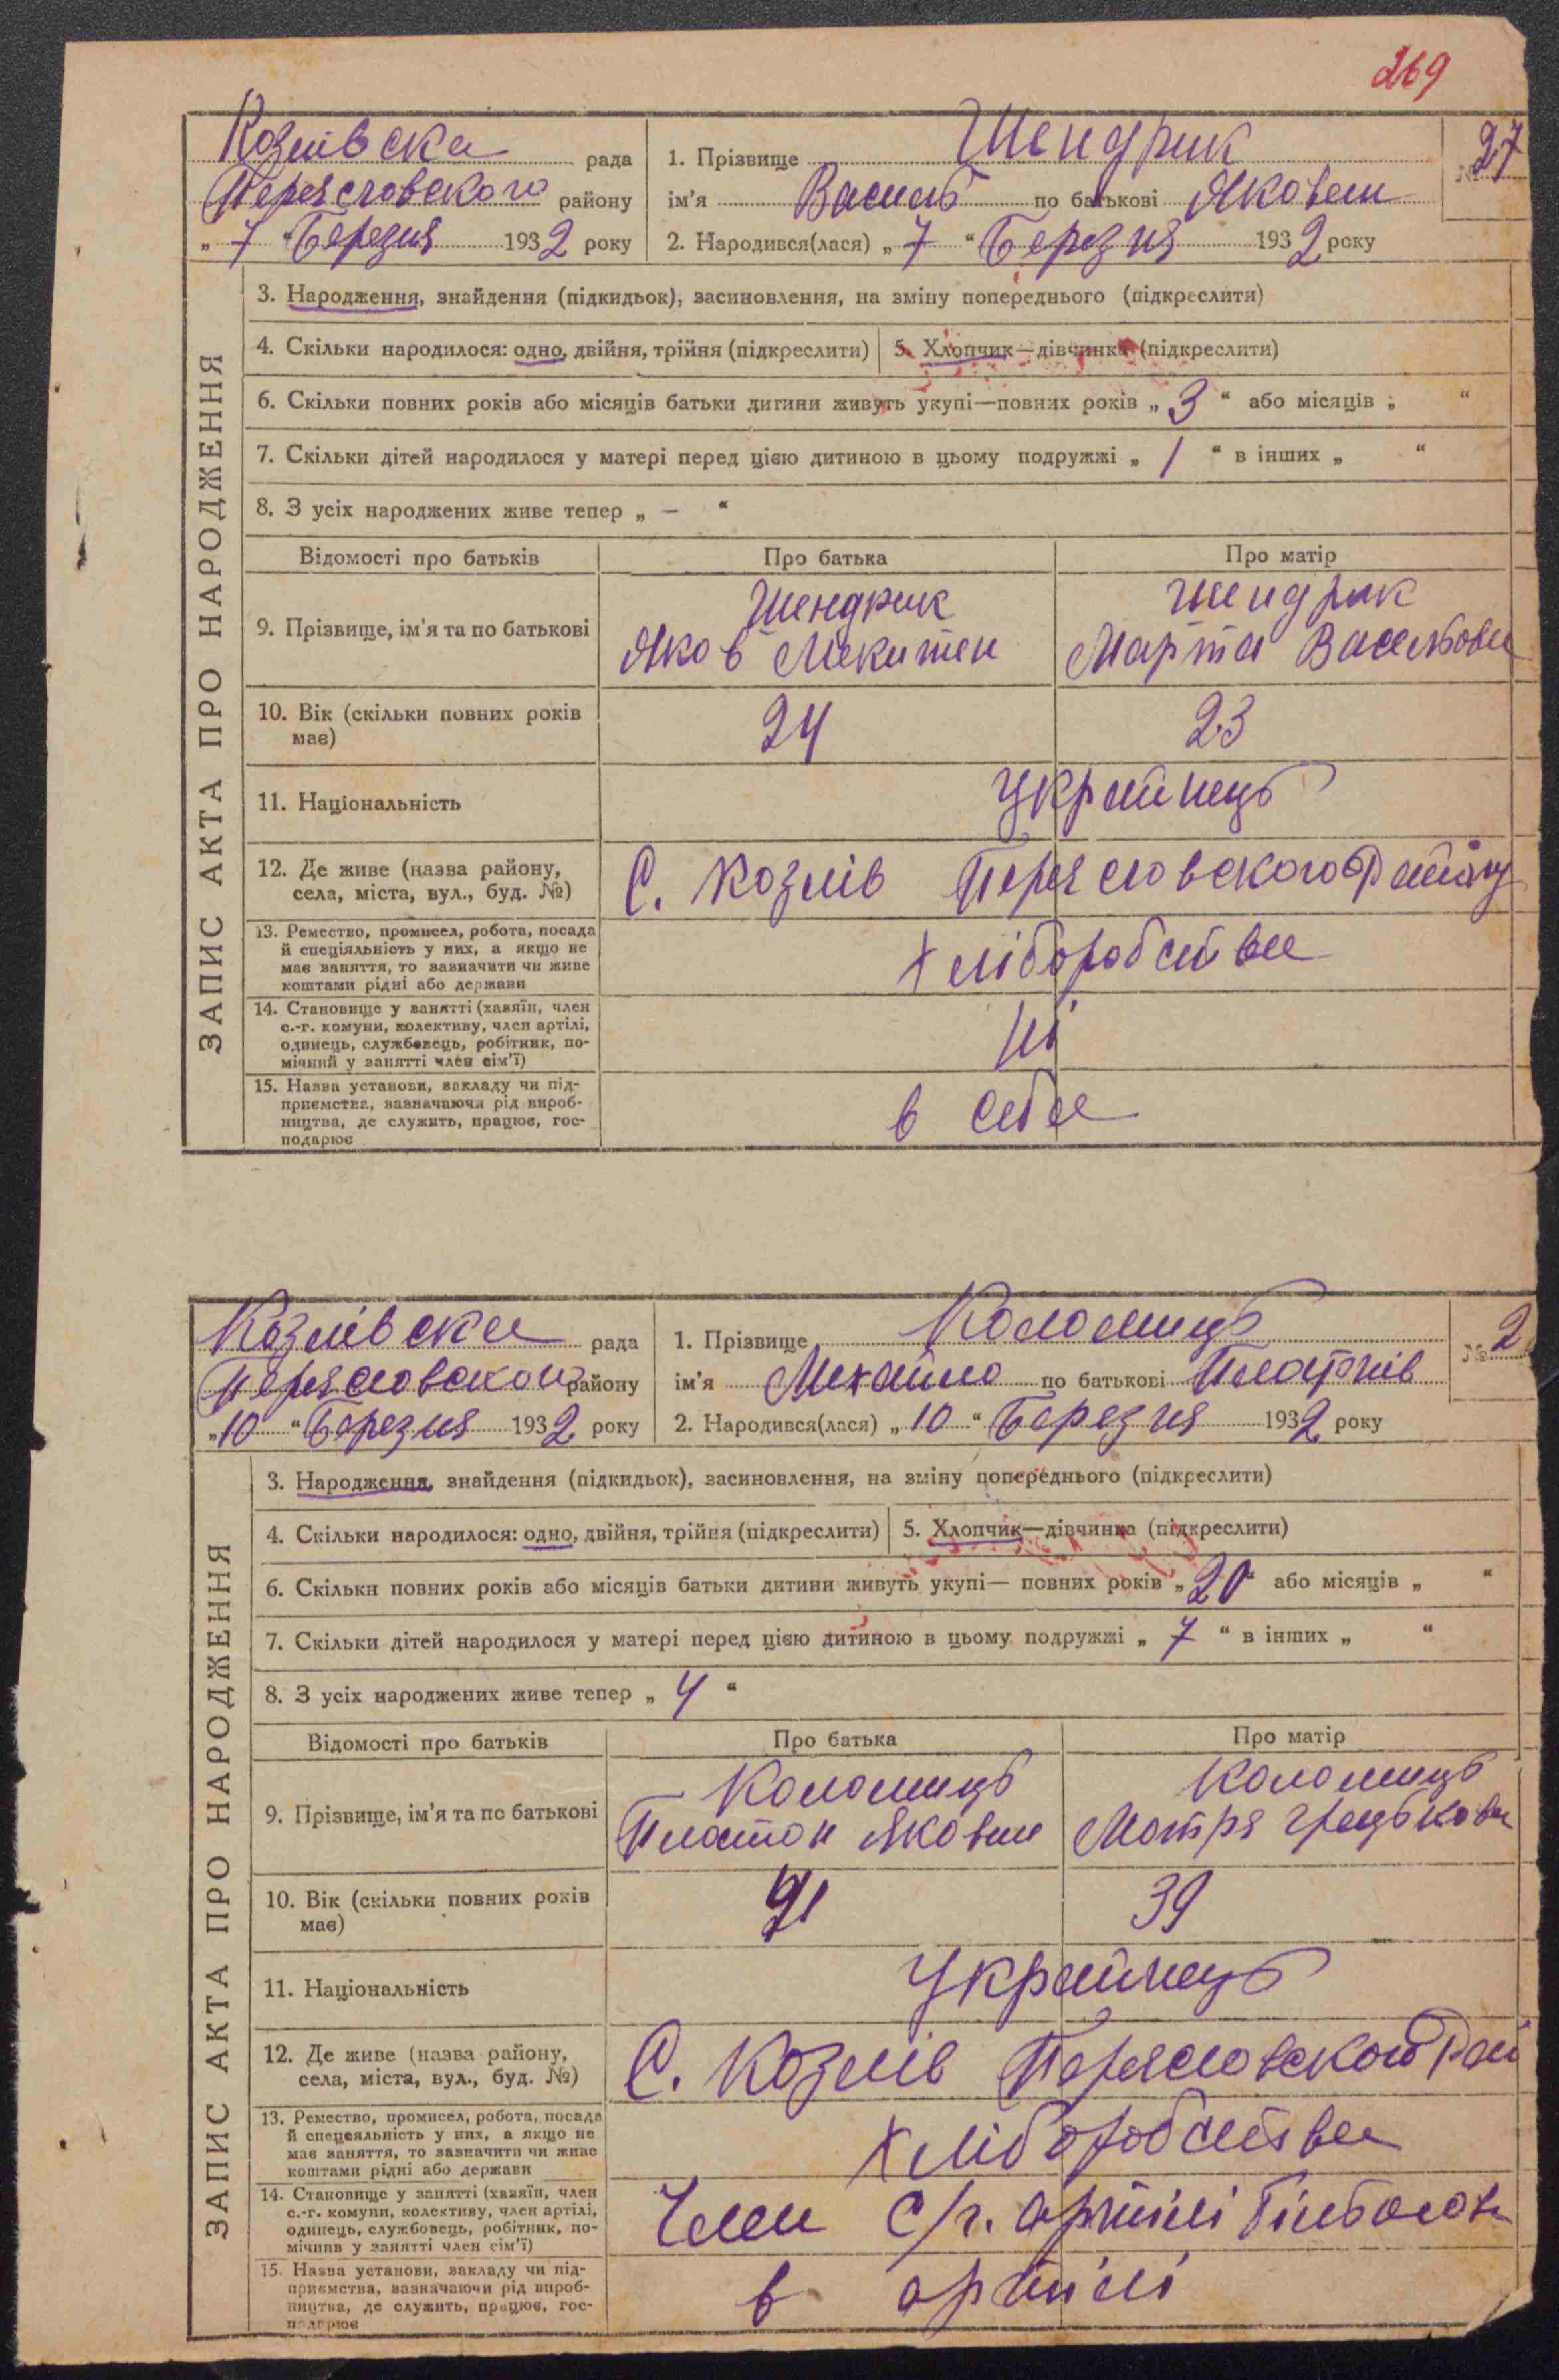 269
Козлівска рада
Переясловского району
„ 7 “ Березня 1932 року
1. Прізвище Шендрик
ім'я Василь по батькові Яковен
2. Народився(лася) „ 7 “ Березня 1932 року
№ 27
ЗАПИС АКТА ПРО НАРОДЖЕННЯ
3. Народження, знайдення (підкидьок), засиновлення, на зміну попереднього (підкреслити)
4. Скільки народилося: одно, двійня, трійня (підкреслити)
5. Хлопчик—дівчинка (підкреслити)
6. Скільки повних років або місяців батьки дитини живуть укупі—повних років „ 3 “ або місяців „ “
7. Скільки дітей народилося у матері перед цією дитиною в цьому подружжі „ 1 “ в інших „ “
8. З усіх народжених живе тепер „ – “
Відомості про батьків Про батька Про матір
9. Прізвище, ім'я та по батькові
Шендрик
Яков Микитен
Шендрик
Марта Васильовн
10. Вік (скільки повних років
має)
24 23
11. Національність
Украйнець
12. Де живе (назва району,
села, міста, вул., буд. №)
С. Козлів Переясловского Району
13. Ремество, промисел, робота, посада
й спеціяльність у них, а якщо не
має заняття, то зазначити чи живе
коштами рідні або держави
хліборобства
14. Становище у занятті (хазяїн, член
с.-г. комуни, колективу, член артілі,
одинець, службовець, робітник, по-
мічний у занятті член сім'ї)
15. Назва установи, закладу чи під-
приємства, зазначаючи рід вироб-
ництва, де служить, працює, гос-
подарює
в себе
Козлівска рада
Переясловского району
„ 10 “ Березня 1932 року
1. Прізвище Коломиць
ім'я Михайло по батькові Платонів
2. Народився(лася) „ 10 “ Березня 1932 року
№ 2
ЗАПИС АКТА ПРО НАРОДЖЕННЯ
3. Народження, знайдення (підкидьок), засиновлення, на зміну попереднього (підкреслити)
4. Скільки народилося: одно, двійня, трійня (підкреслити)
5. Хлопчик—дівчинка (підкреслити)
6. Скільки повних років або місяців батьки дитини живуть укупі— повних років „ 20 “ або місяців „ “
7. Скільки дітей народилося у матері перед цією дитиною в цьому подружжі „ 7 “ в інших „ “
8. З усіх народжених живе тепер „ 4 “
Відомості про батьків Про батька Про матір
9. Прізвище, ім'я та по батькові
Коломиць
Платон Яковен
Коломиць
Мотря Грецьковн
10. Вік (скільки повних років
має)
41 39
11. Національність
Украйнець
12. Де живе (назва району,
села, міста, вул., буд. №)
С. Козлів Переясловского Рай
13. Ремество, промисел, робота, посада
й спецеяльність у них, а якщо не
має заняття, то зазначити чи живе
коштами рідні або держави
хліборобства
14. Становище у занятті (хазяїн, член
с.-г. комуни, колективу, член артілі,
одинець, службовець, робітник, по-
мічнив у занятті член сім'ї)
Член С/г. артілі
15. Назва установи, закладу чи під-
приємства, зазначаючи рід вироб-
ництва, де служить, працює, гос-
подарює
в артілі